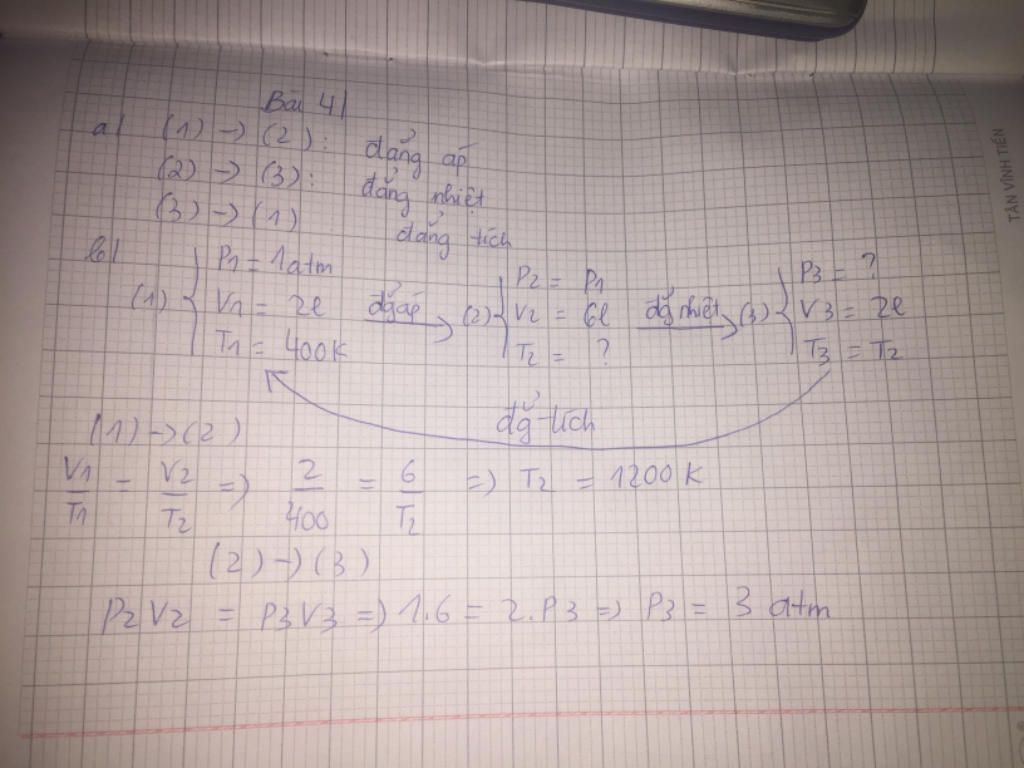 Bài 4|
a| (1) → (2): đẳng áp
(2) → (3): đẳng nhiệt
(3) → (1) đẳng tích
b| (1) { P1 = 1atm V1 = 2l T1 = 400K đẳg áp → (2) { P2 = P1 V2 = 6l T2 = ? đẳg nhiệt → (3) { P3 = ? V3 = 2l T3 = T2
đẳg tích
(1) → (2)
V1/T1 = V2/T2 => 2/400 = 6/T2 => T2 = 1200K
(2) → (3)
P2V2 = P3V3 => 1.6 = 2.P3 => P3 = 3 atm
TÂN VĨNH TIẾN